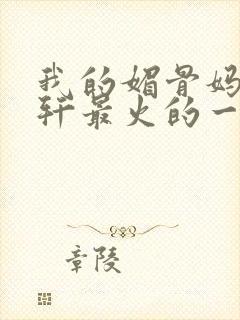 我的媚骨妈
轩最火的一
章陵